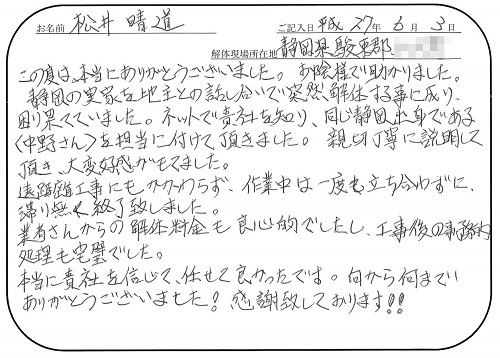 お名前 松井晴道 ご記入日 平成27年6月3日
解体現場所在地 静岡県駿東郡
この度は、本当にありがとうございました。お陰様で助かりました。
静岡の実家を地主との話し合いで突然解体する事に成り、
困り果てていました。ネットで貴社を知り、同じ静岡出身である
〈中野さん〉を担当に付けて頂きました。親切丁寧に説明して
頂き、大変好感がモてました。
遠距離工事にもかかわらず、作業中は一度も立ち合わずに、
滞り無く終了致しました。
業者さんからの解体料金も良心的でしたし、工事後の事務的
処理も完璧でした。
本当に貴社を信じて、任せて良かったです。何から何まで
ありがとうございました!感謝致しております!!